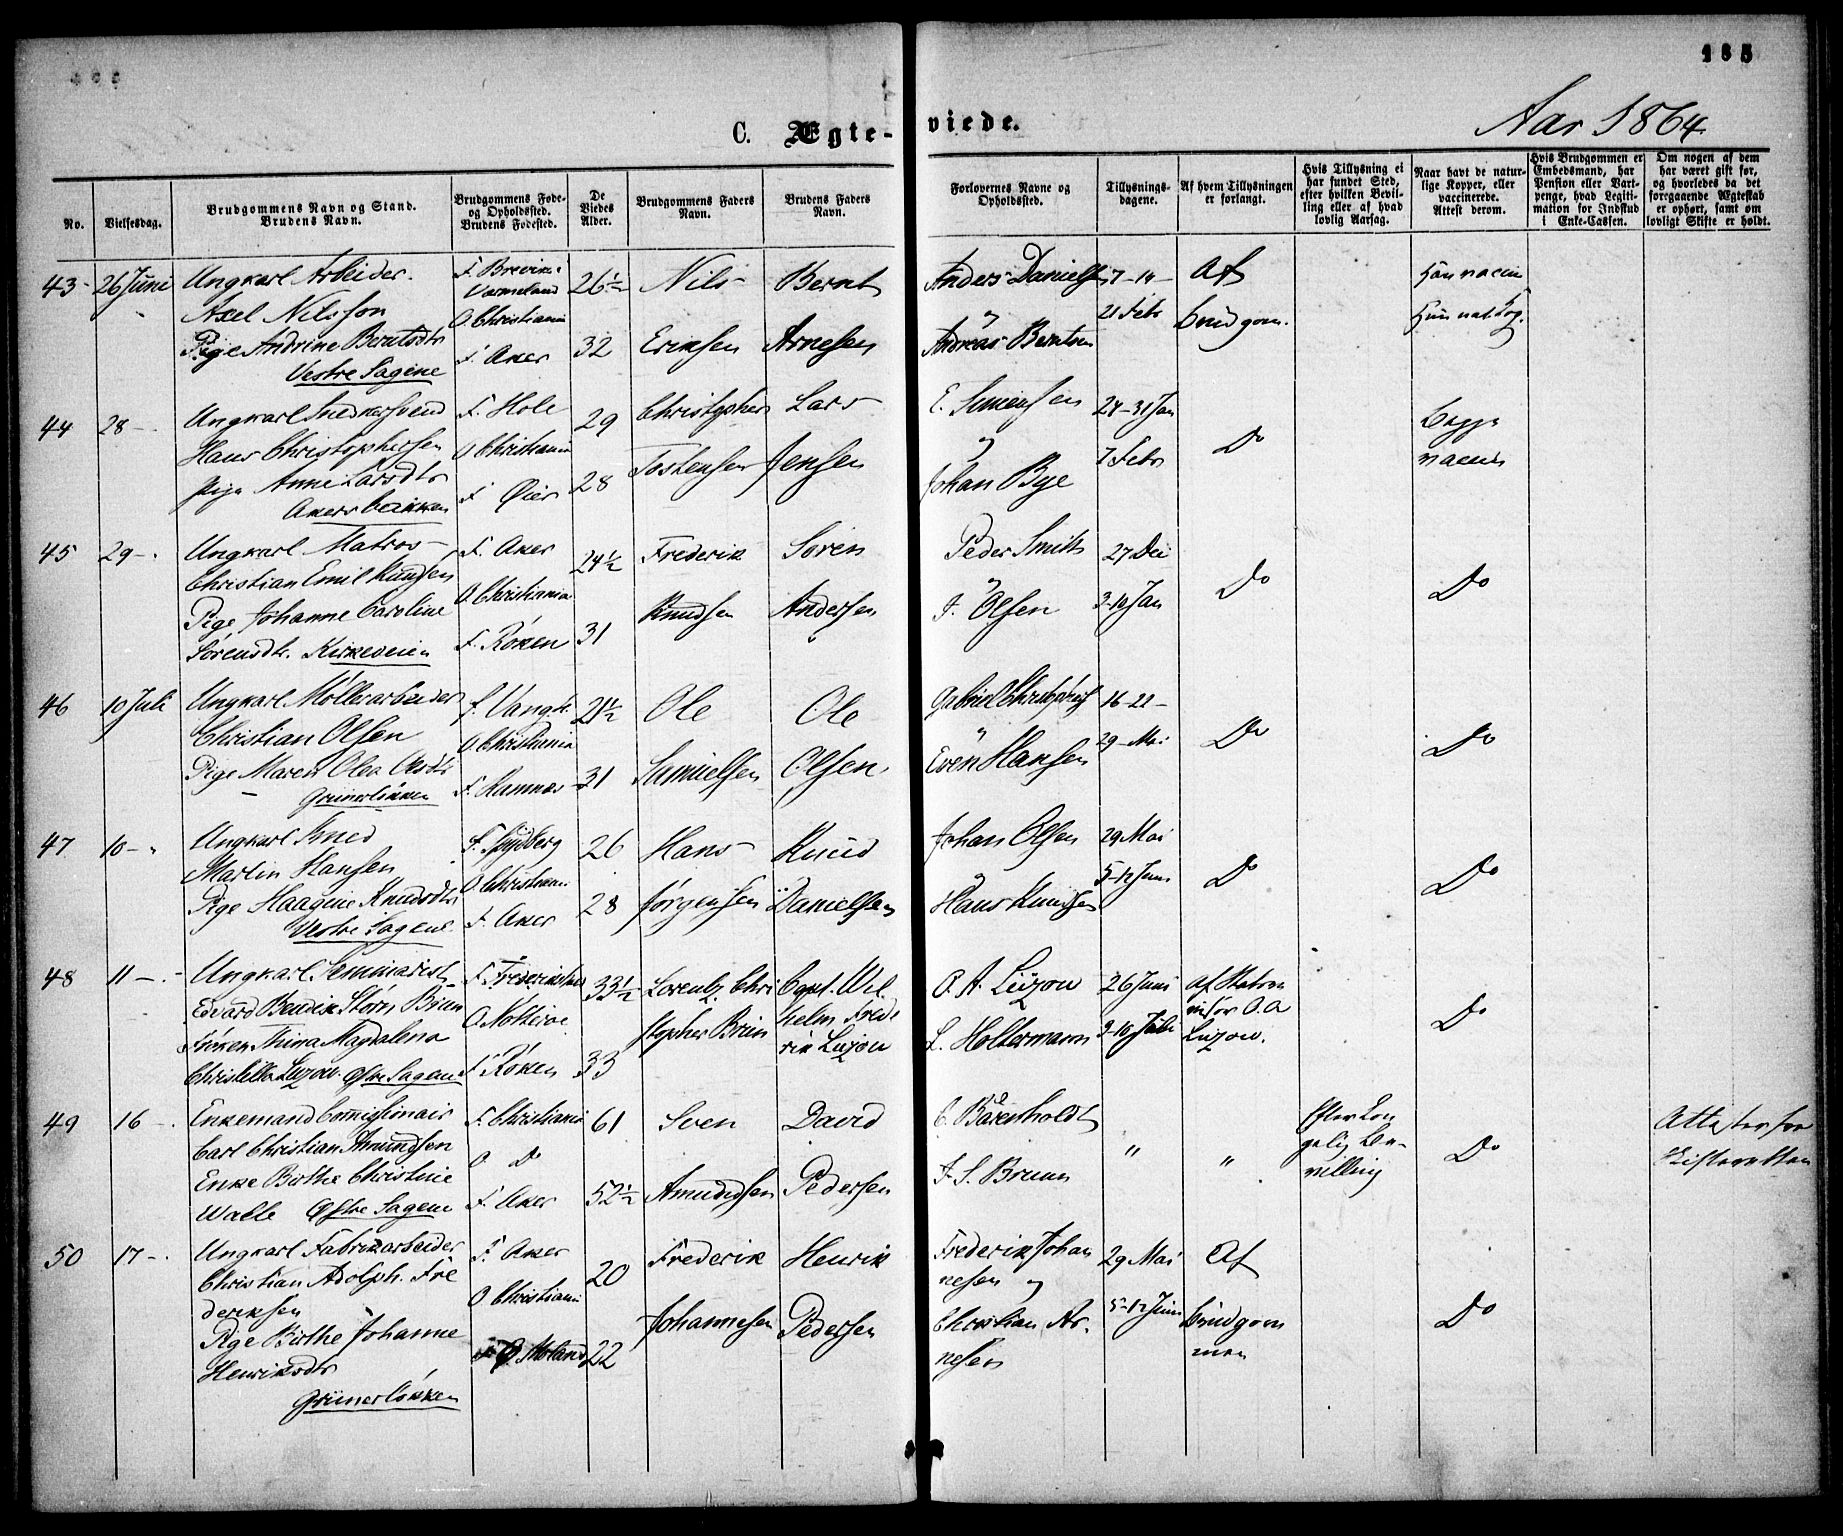 165
C. Ægte-
viede.
Aar 1864.
No.
Vielsesdag.
Brudgommens Navn og Stand.
Brudens Navn.
Brudgommens Føde-
og Opholdssted.
Brudens Fødested.
De
Viedes
Alder.
Brudgommens Faders
Navn.
Brudens Faders
Navn.
Forlovernes Navne og
Opholdssted.
Tillysnings-
dagene.
Af hvem Tillysningen
er forlangt.
Hvis Tillysning ei
har fundet Sted,
efter hvilken Bevil-
ling eller af hvad
lovlig Aarsag.
Naar havt de natur-
lige Kopper, eller
vaccinerede.
Attest derom.
Hvis Brudgommen er
Embedsmand, har
Pension eller Vart-
penge, hvad Legiti-
mation for Indskud
i Enke-Cassen.
Om nogen af dem
har været gift før,
og hvorledes da det
foregaaende Ægteskab
er ophørt, samt om
lovligt Skifte er holdt.
43
26 Juni
Ungkarl Arbeider
Axel Nilsson
Pige Andrine Berntsdtr
Vestre Sagene
F. Brevik
Vermeland
O. Christiania
F. Aker
26½
32
Nils
Eriksen
Bernt
Arnesen
Anders Danielsen
"
Andreas Berntsen
7-14-
21 Febr
Af
brudgom.
Han vaccin
44
28
Ungkarl Snedkersvend
Hans Christophersen
Pige Anne Larsdtr
Akersbakken
F. Hole
O Christiania
F. Øier
29
28
Christopher
Tostensen
Lars
Jensen
E. Simensen
Johan Bye
24-31 Jan
7 Febr
Do
begge
vaccin
45
29
Ungkarl Matros
Christian Emil Knudsen
Pige Johanne Caroline
Sørensdtr. Kirkeveien
F. Aker
O. Christiania
F. Røken
24½
31
Frederik
Knudsen
Søren
Andersen
Peder Smith
J. Olsen
27 Dec
3-10 Jan
Do
Do
46
10 Juli
Ungkarl Møllerarbeider
Christian Olsen
Pige Maren Olea Olsdtr
Grünerløkken
F. Vang
O. Christiania
F. Ramnæs
21½
31
Ole
Samuelsen
Ole
Olsen
Even Hansen
16-22-
29 Mai
Do
Do
47
10
Ungkarl Smed
Martin Hansen
Pige Haagine Knudsdtr
Vestre Sagene
F. Spydberg
O Christiania
F. Aker
26
28
Hans
Jørgensen
Knud
Danielsen
Johan Olsen
Hans Knudsen
29 Mai
5-12 Juni
Do
Do
48
11
Ungkarl Seminarist
Edvard Bendix Storm Brun
Frøken Thina Magdalena
Christella Lüzow. Østre Sagene
F. Frederikstad
O. Notterøe
F. Røken
33½
33
Lorentz Chri
stopher Brun
Capt. Wil
helm Frede
rik Lüzow
O. A. Lüzow
L. Holtermann
26 Juni
3-10 Juli
Af
O. A
Lüzow.
Do
49
16
Enkemand Commissionair
Carl Christian Amundsen
Enke Birthe Christine
Walle Østre Sagene
F. Christiania
O Do
F. Aker
61
52½
Sven
Amundsen
David
Pedersen
C. Bärenholdt
J. S. Bruun
"
"
Efter Kon
gelig Be-
villing
Do
Attester fra
Skifteretten
50
17
Ungkarl Fabrikarbeider
Christian Adolph. Fre
deriksen
Pige Birthe Johanne
Henriksdtr
Grünerløkken
F. Aker
O Christiania
F. Ø Moland
20
22
Frederik
Johannesen
Henrik
Pedersen
Frederik Johan
nesen og
Christian Ar-
nesen
29 Mai
5-12 Juni
Af
brudgom
men
Do